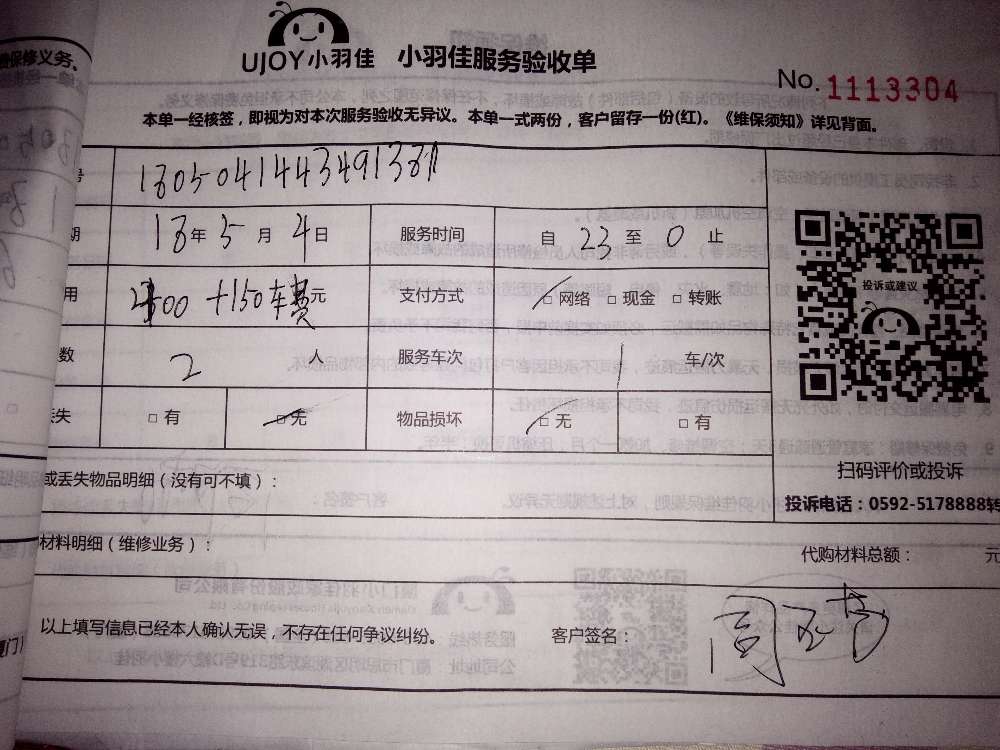 UJOY小羽佳 小羽佳服务验收单
No. 1113304
本单一经核签，即视为对本次服务验收无异议。本单一式两份，客户留存一份(红)。《维保须知》详见背面。
保修义务。
号
期 18年5月4日 服务时间 自23至0止
用 +150车费元 支付方式 □网络 □现金 □转账
数 2 人 服务车次 1 车/次
失 □有 □无 物品损坏 □无 □有
投诉或建议
扫码评价或投诉
投诉电话：0592-5178888转
或丢失物品明细（没有可不填）：
材料明细（维修业务）： 代购材料总额： 元
以上填写信息已经本人确认无误，不存在任何争议纠纷。 客户签名：